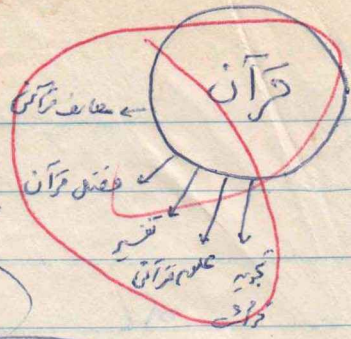 قرآن
معارف قرآنی
فضل قرآن
تفسیر
علوم قرآنی
تجوید